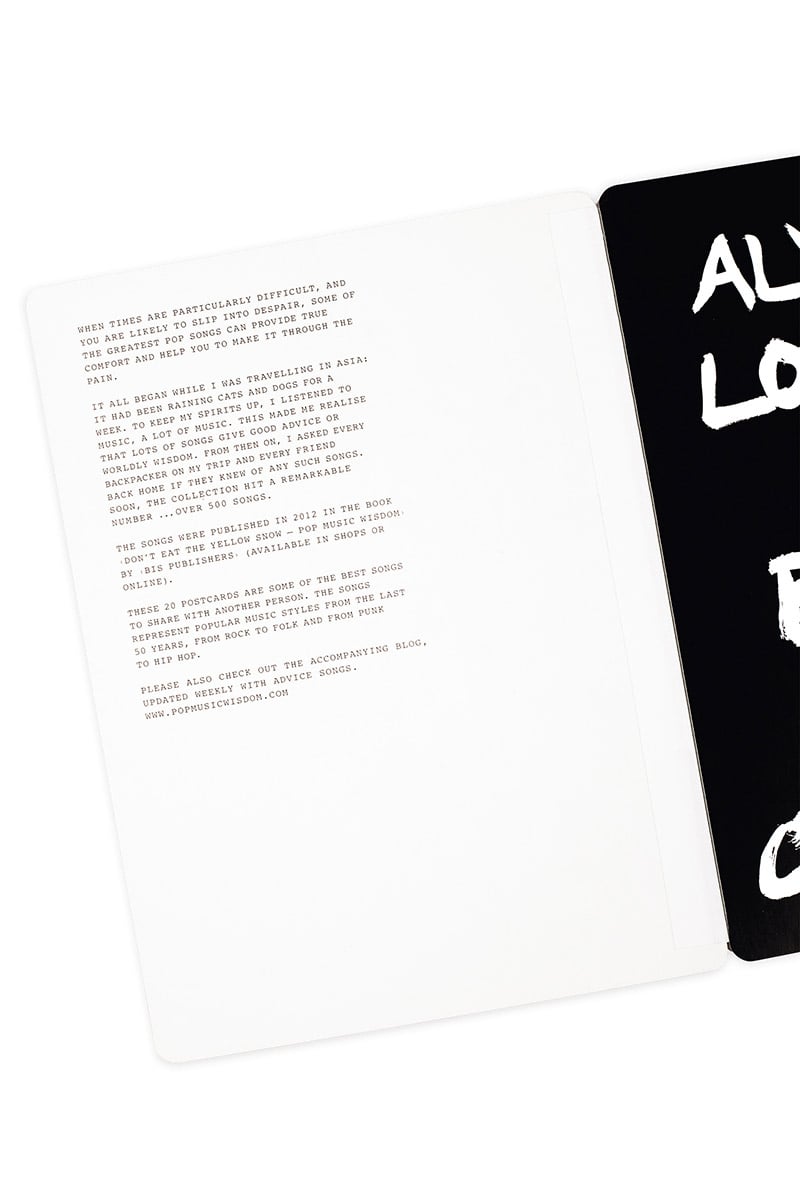 WHEN TIMES ARE PARTICULARLY DIFFICULT, AND
YOU ARE LIKELY TO SLIP INTO DESPAIR, SOME OF
THE GREATEST POP SONGS CAN PROVIDE TRUE
COMFORT AND HELP YOU TO MAKE IT THROUGH THE
PAIN.
IT ALL BEGAN WHILE I WAS TRAVELLING IN ASIA:
IT HAD BEEN RAINING CATS AND DOGS FOR A
WEEK. TO KEEP MY SPIRITS UP, I LISTENED TO
MUSIC, A LOT OF MUSIC. THIS MADE ME REALISE
THAT LOTS OF SONGS GIVE GOOD ADVICE OR
WORLDLY WISDOM. FROM THEN ON, I ASKED EVERY
BACKPACKER ON MY TRIP AND EVERY FRIEND
BACK HOME IF THEY KNEW OF ANY SUCH SONGS.
SOON, THE COLLECTION HIT A REMARKABLE
NUMBER ...OVER 500 SONGS.
THE SONGS WERE PUBLISHED IN 2012 IN THE BOOK
‹DON'T EAT THE YELLOW SNOW – POP MUSIC WISDOM›
BY ‹BIS PUBLISHERS› (AVAILABLE IN SHOPS OR
ONLINE).
THESE 20 POSTCARDS ARE SOME OF THE BEST SONGS
TO SHARE WITH ANOTHER PERSON. THE SONGS
REPRESENT POPULAR MUSIC STYLES FROM THE LAST
50 YEARS, FROM ROCK TO FOLK AND FROM PUNK
TO HIP HOP.
PLEASE ALSO CHECK OUT THE ACCOMPANYING BLOG,
UPDATED WEEKLY WITH ADVICE SONGS.
WWW.POPMUSICWISDOM.COM
AL
LO